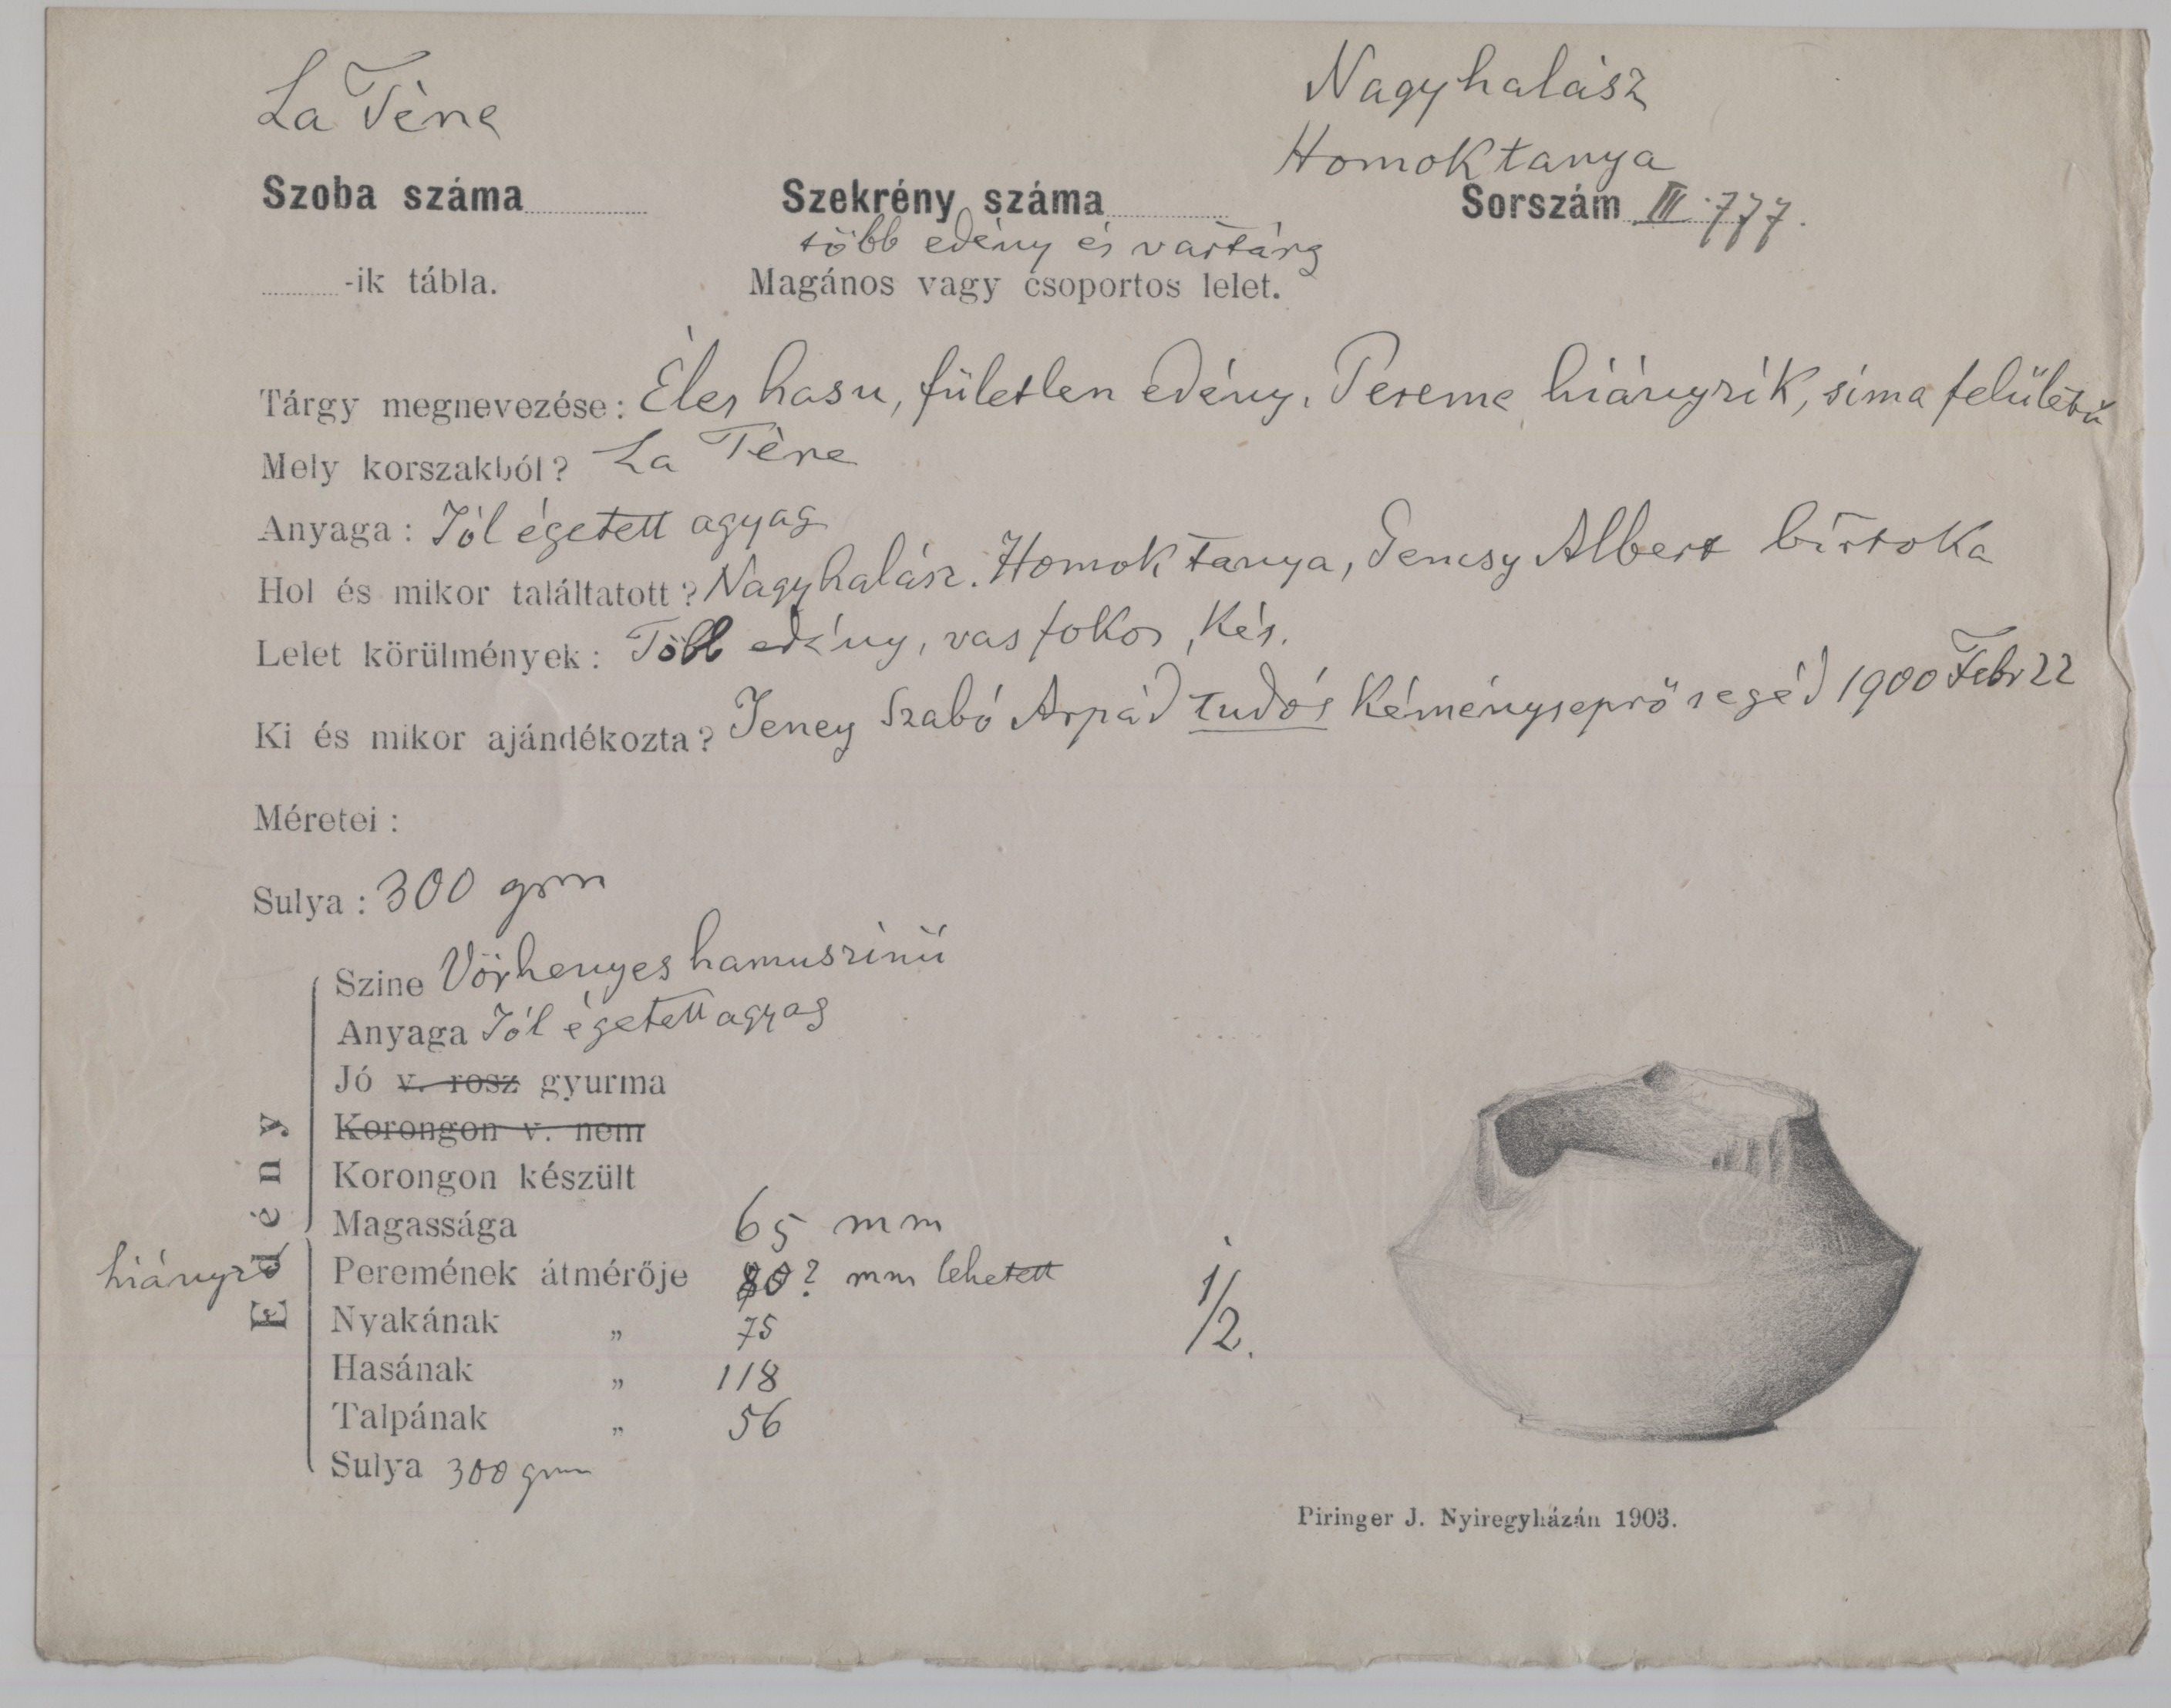 La Tène
Nagyhalász
Homoktanya
Szoba száma Szekrény száma Sorszám III. 777.
több edény és vastárg
-ik tábla. Magános vagy csoportos lelet.
Tárgy megnevezése: Éles hasu, fületlen edény. Pereme hiányzik, sima felületü
Mely korszakból? La Tène
Anyaga: Jól égetett agyag
Hol és mikor találtatott? Nagyhalász. Homok tanya, Gencsy Albert birtoka
Lelet körülmények: Több edény, vas fokos, kés.
Ki és mikor ajándékozta? Jeney Szabó Árpád tudós kéményseprő segéd 1900 Febr 22
Méretei:
Sulya: 300 grm
Edény
Szine Vörhenyes hamuszinü
Anyaga Jól égetett agyag
Jó v. rosz gyurma
Korongon v. nem
Korongon készült
Magassága 65 mm
hiányzó Peremének átmérője 80? mm lehetett
Nyakának „ 75
Hasának „ 118
Talpának „ 56
Sulya 300 grm
1/2.
Piringer J. Nyiregyházán 1903.